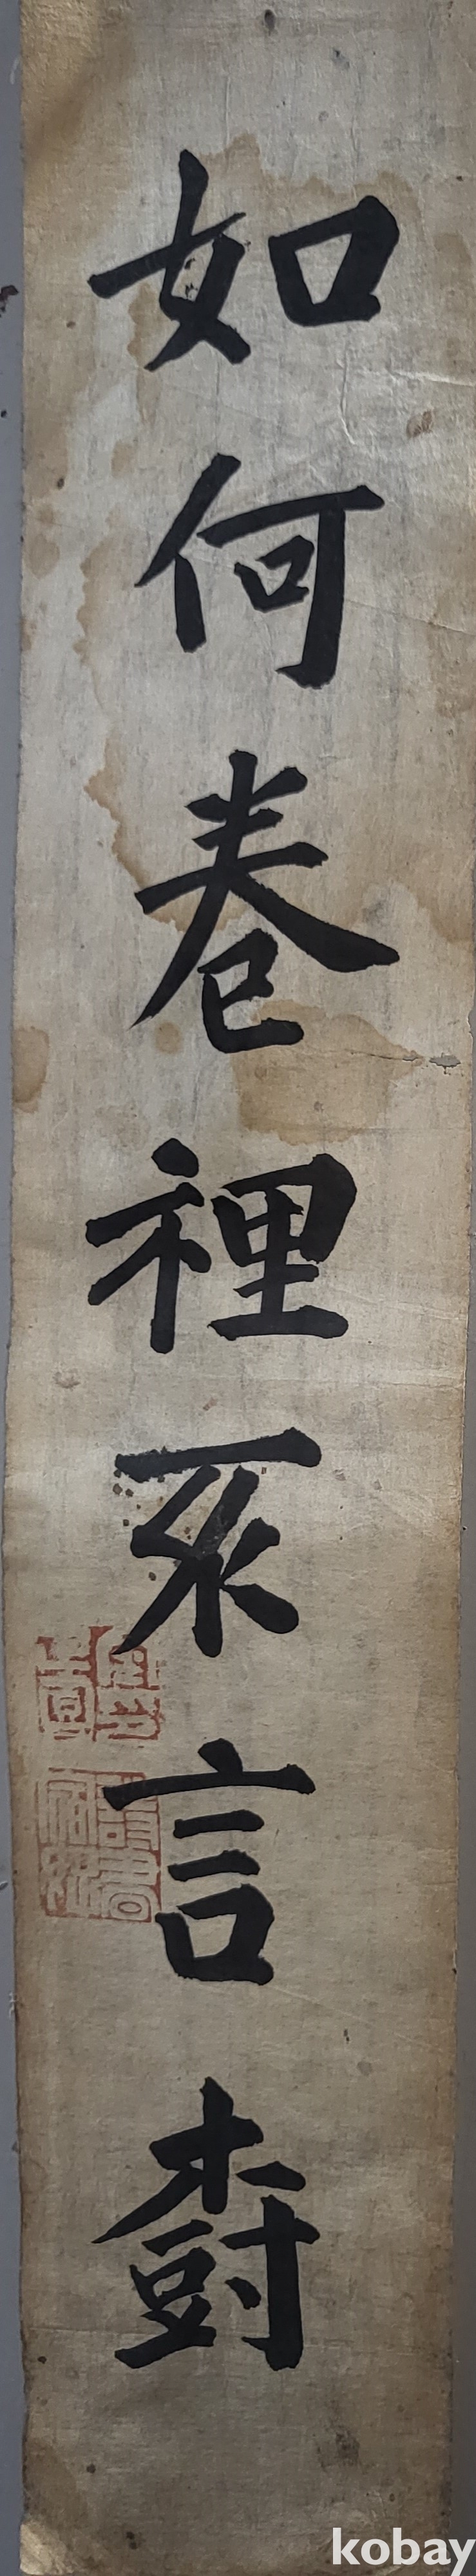 如何卷裡不言樹
kobay